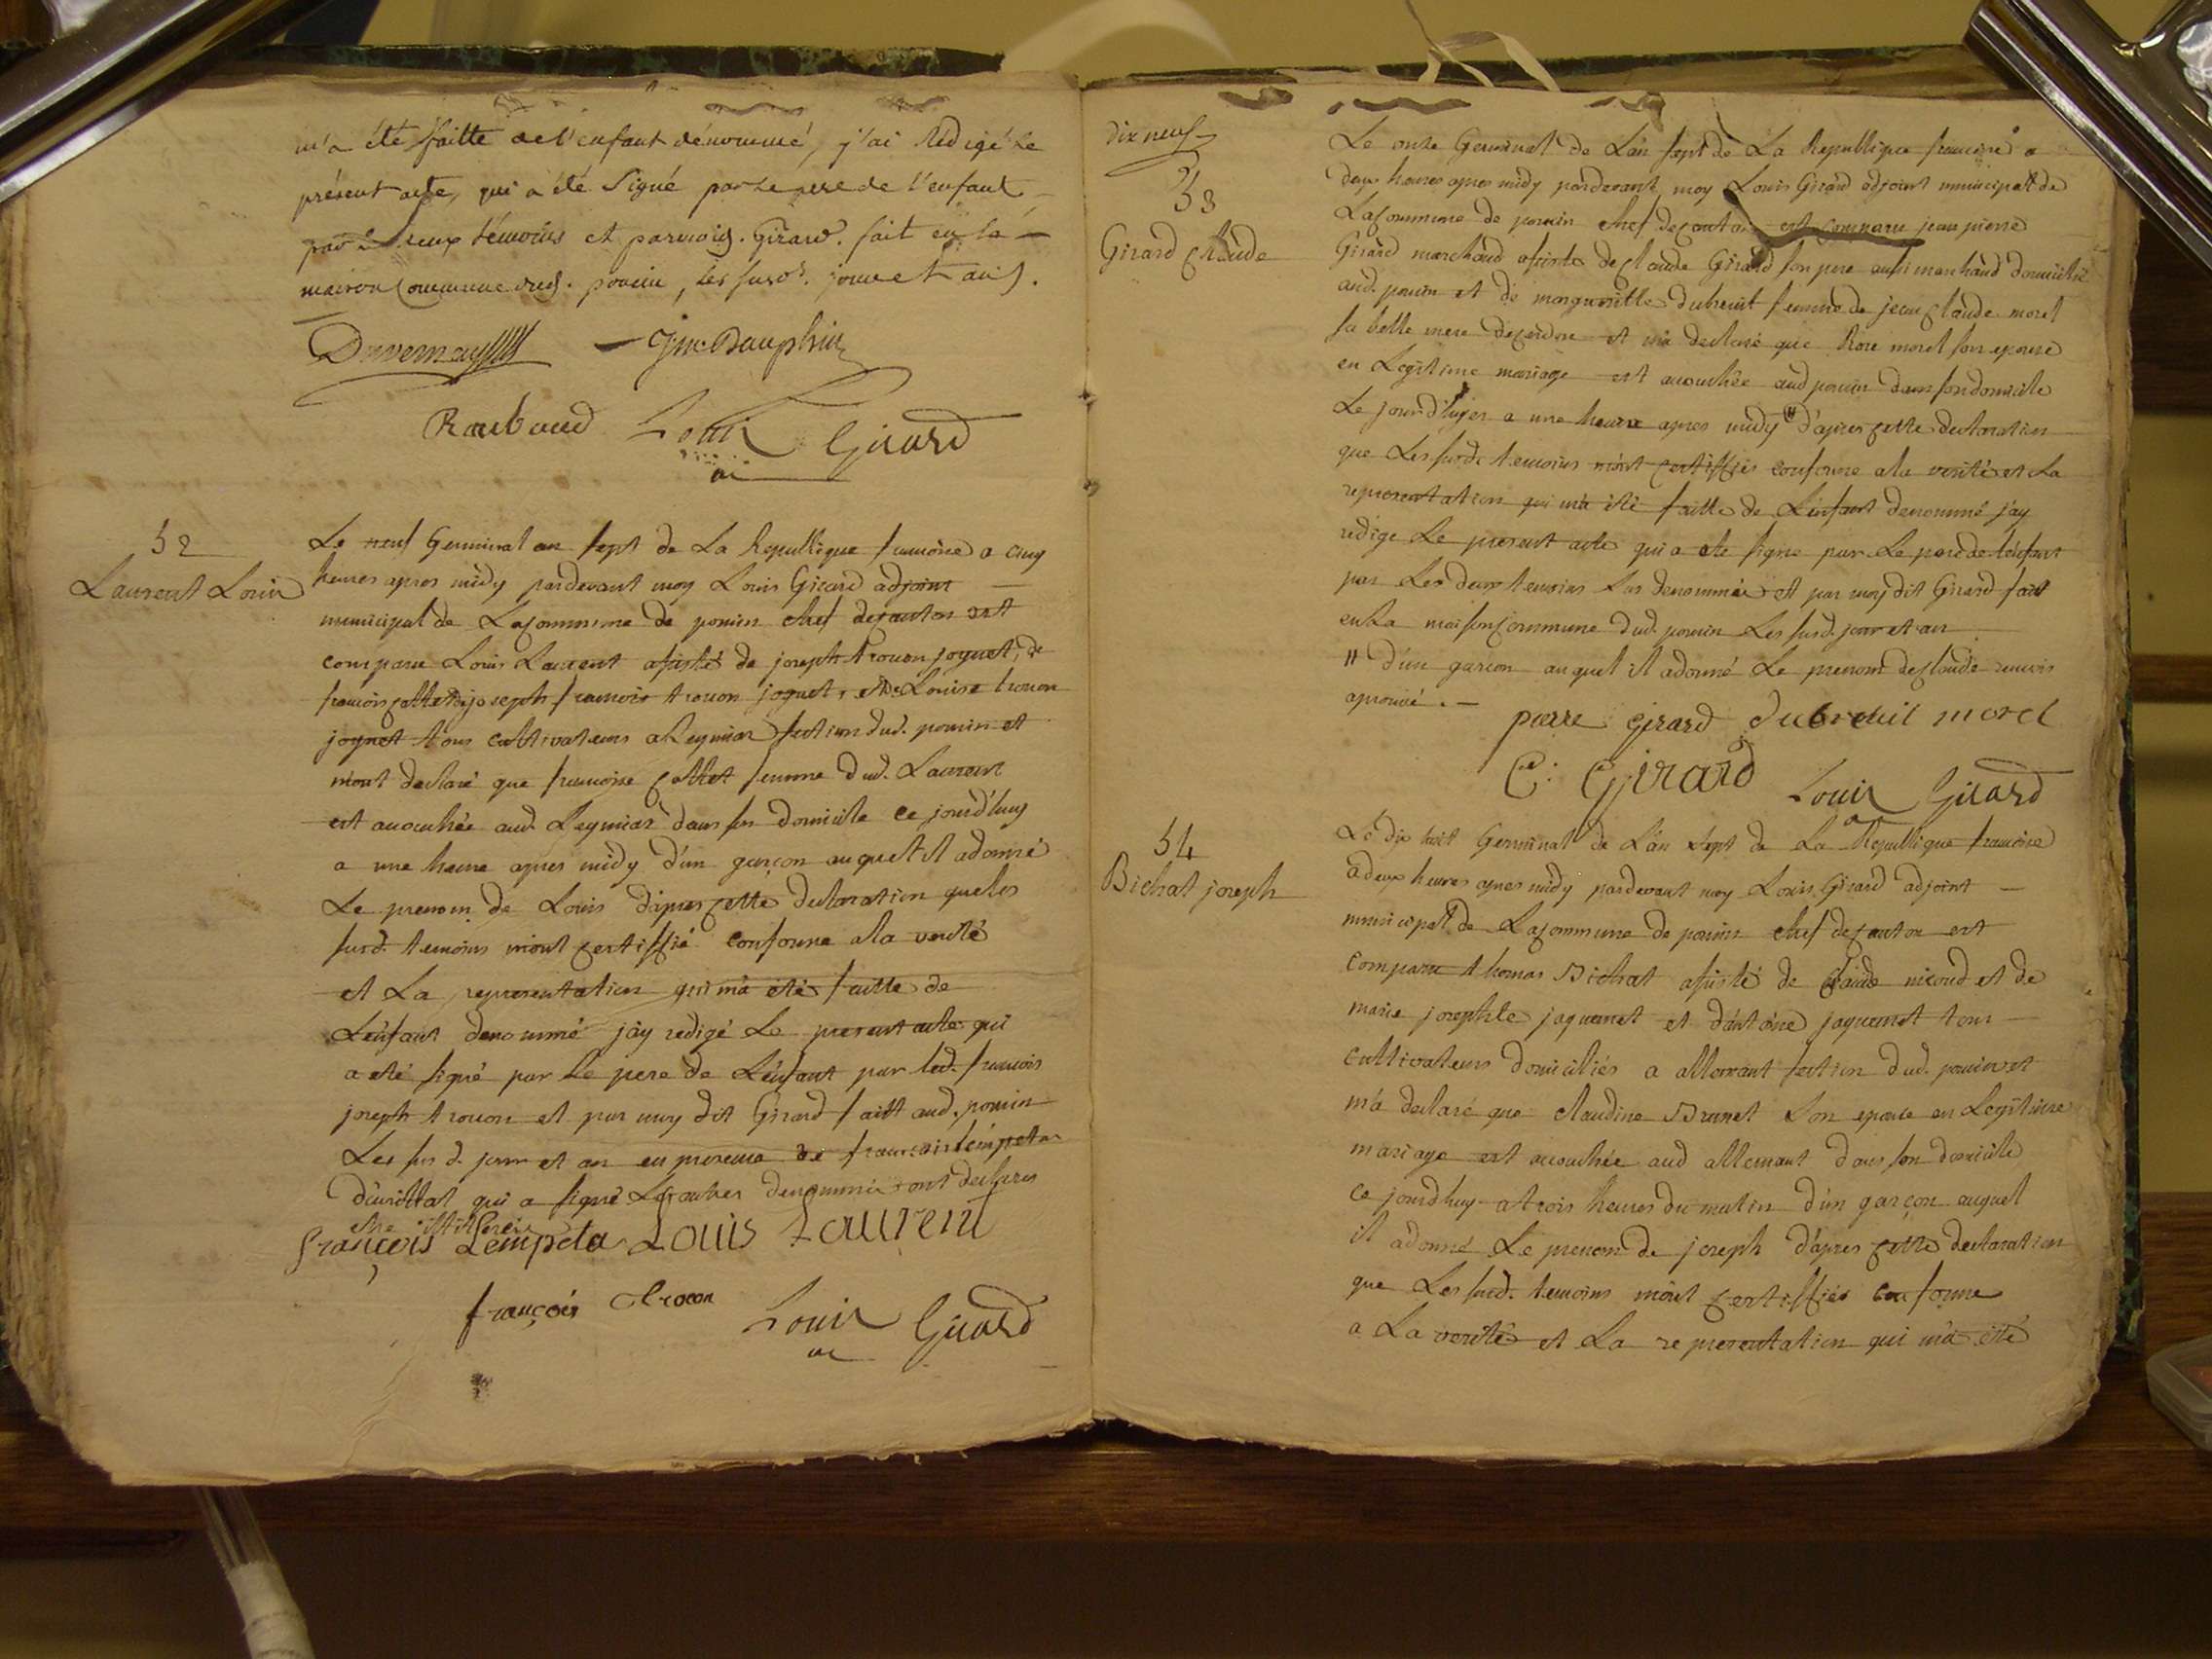 m'a été faitte de l'enfant dénommé, j'ai rédigé le
présent acte, qui a été signé par le pere de l'enfant
par les deux témoins et par moid. Girard. fait en la
maison Commune dud. poncin, les susd. jour et an).
Duvernay J m Dauphin
Raubaud Louis Girard
ai
52
Laurent Louis
Le neuf Germinal an sept de La Republique francoise a cinq
heures apres midy pardevant moy Louis Girard adjoint
municipal de La commune de poncin chef de canton est
comparu Louis Laurent assisté de joseph trouon joguet, de
francois collet de joseph francois trouon joguet, et de Louise trouon
joguet tous cultivateurs a Leymiat section dud. poncin et
m'ont declaré que francoise collet femme dud. Laurent
est accouchée aud. Leymiat dans son domicile ce jourd'huy
a une heure apres midy d'un garçon auquel il a donné
Le prenom de Louis d'apres cette declaration que les
susd. temoins m'ont certiffié conforme a la verité
et La representation qui m'a eté faitte de
L'enfant denommé j'ay redigé Le present acte qui
a eté signé par Le pere de L'enfant par led. francois
joseph trouon et par moy dit Girard fait aud. poncin
Les sus d. jour et an en presence de francois Lempeta
qui a signé Les autres denommés ont declarés
françois Lempéta Louis Laurent
françois trouon Louis Girard
dix neuf
53
Girard Claude
Le onze Germinal de L'an sept de La Republique francoise a
deux heures apres midy pardevant moy Louis Girard adjoint municipal de
La commune de poncin chef de canton est comparu jean pierre
Girard marchand assisté de Claude Girard son pere aussi marchand domicilié
aud. poncin et de margueritte dubreuil femme de jean claude morel
sa belle mere et m'a declaré que Rose morel son epouse
en Legitime mariage est accouchée aud poncin dans son domicile
Le jourd'huyer a une heure apres midy // d'apres cette declaration
que Les susd. temoins m'ont certiffiés conforme a la verité et La
representation qui m'a été faitte de L'enfant denommé j'ay
redigé Le present acte qui a ete signé par Le pere de L'enfant
par Les deux temoins sus denommés et par moy dit Girard fait
en La maison commune dud. poncin Les susd. jour et an
// d'un garcon auquel il a donné Le prenom de claude renvois
aprouvé. —
pierre girard dubreuil morel
Ce: Girard Louis Girard
54
Bichat joseph
Le dix huit Germinal de L'an sept de La Republique francoise
a deux heures apres midy pardevant moy Louis Girard adjoint —
municipal de La commune de poncin chef de canton est
comparu thomas Bichat assisté de claude nicoud et de
marie josephte jaquemet et d'antoine jaquemet tous
cultivateurs domiciliés a allemant section dud. poncin et
m'a declaré que claudine Brunet son epouse en Legitime
mariage est accouchée aud allemant dans son domicile
ce jourd'huy a trois heures du matin d'un garçon auquel
il a donné Le prenom de joseph d'apres cette declaration
que Les susd. temoins m'ont certiffiés conforme
a La verité et La representation qui m'a été